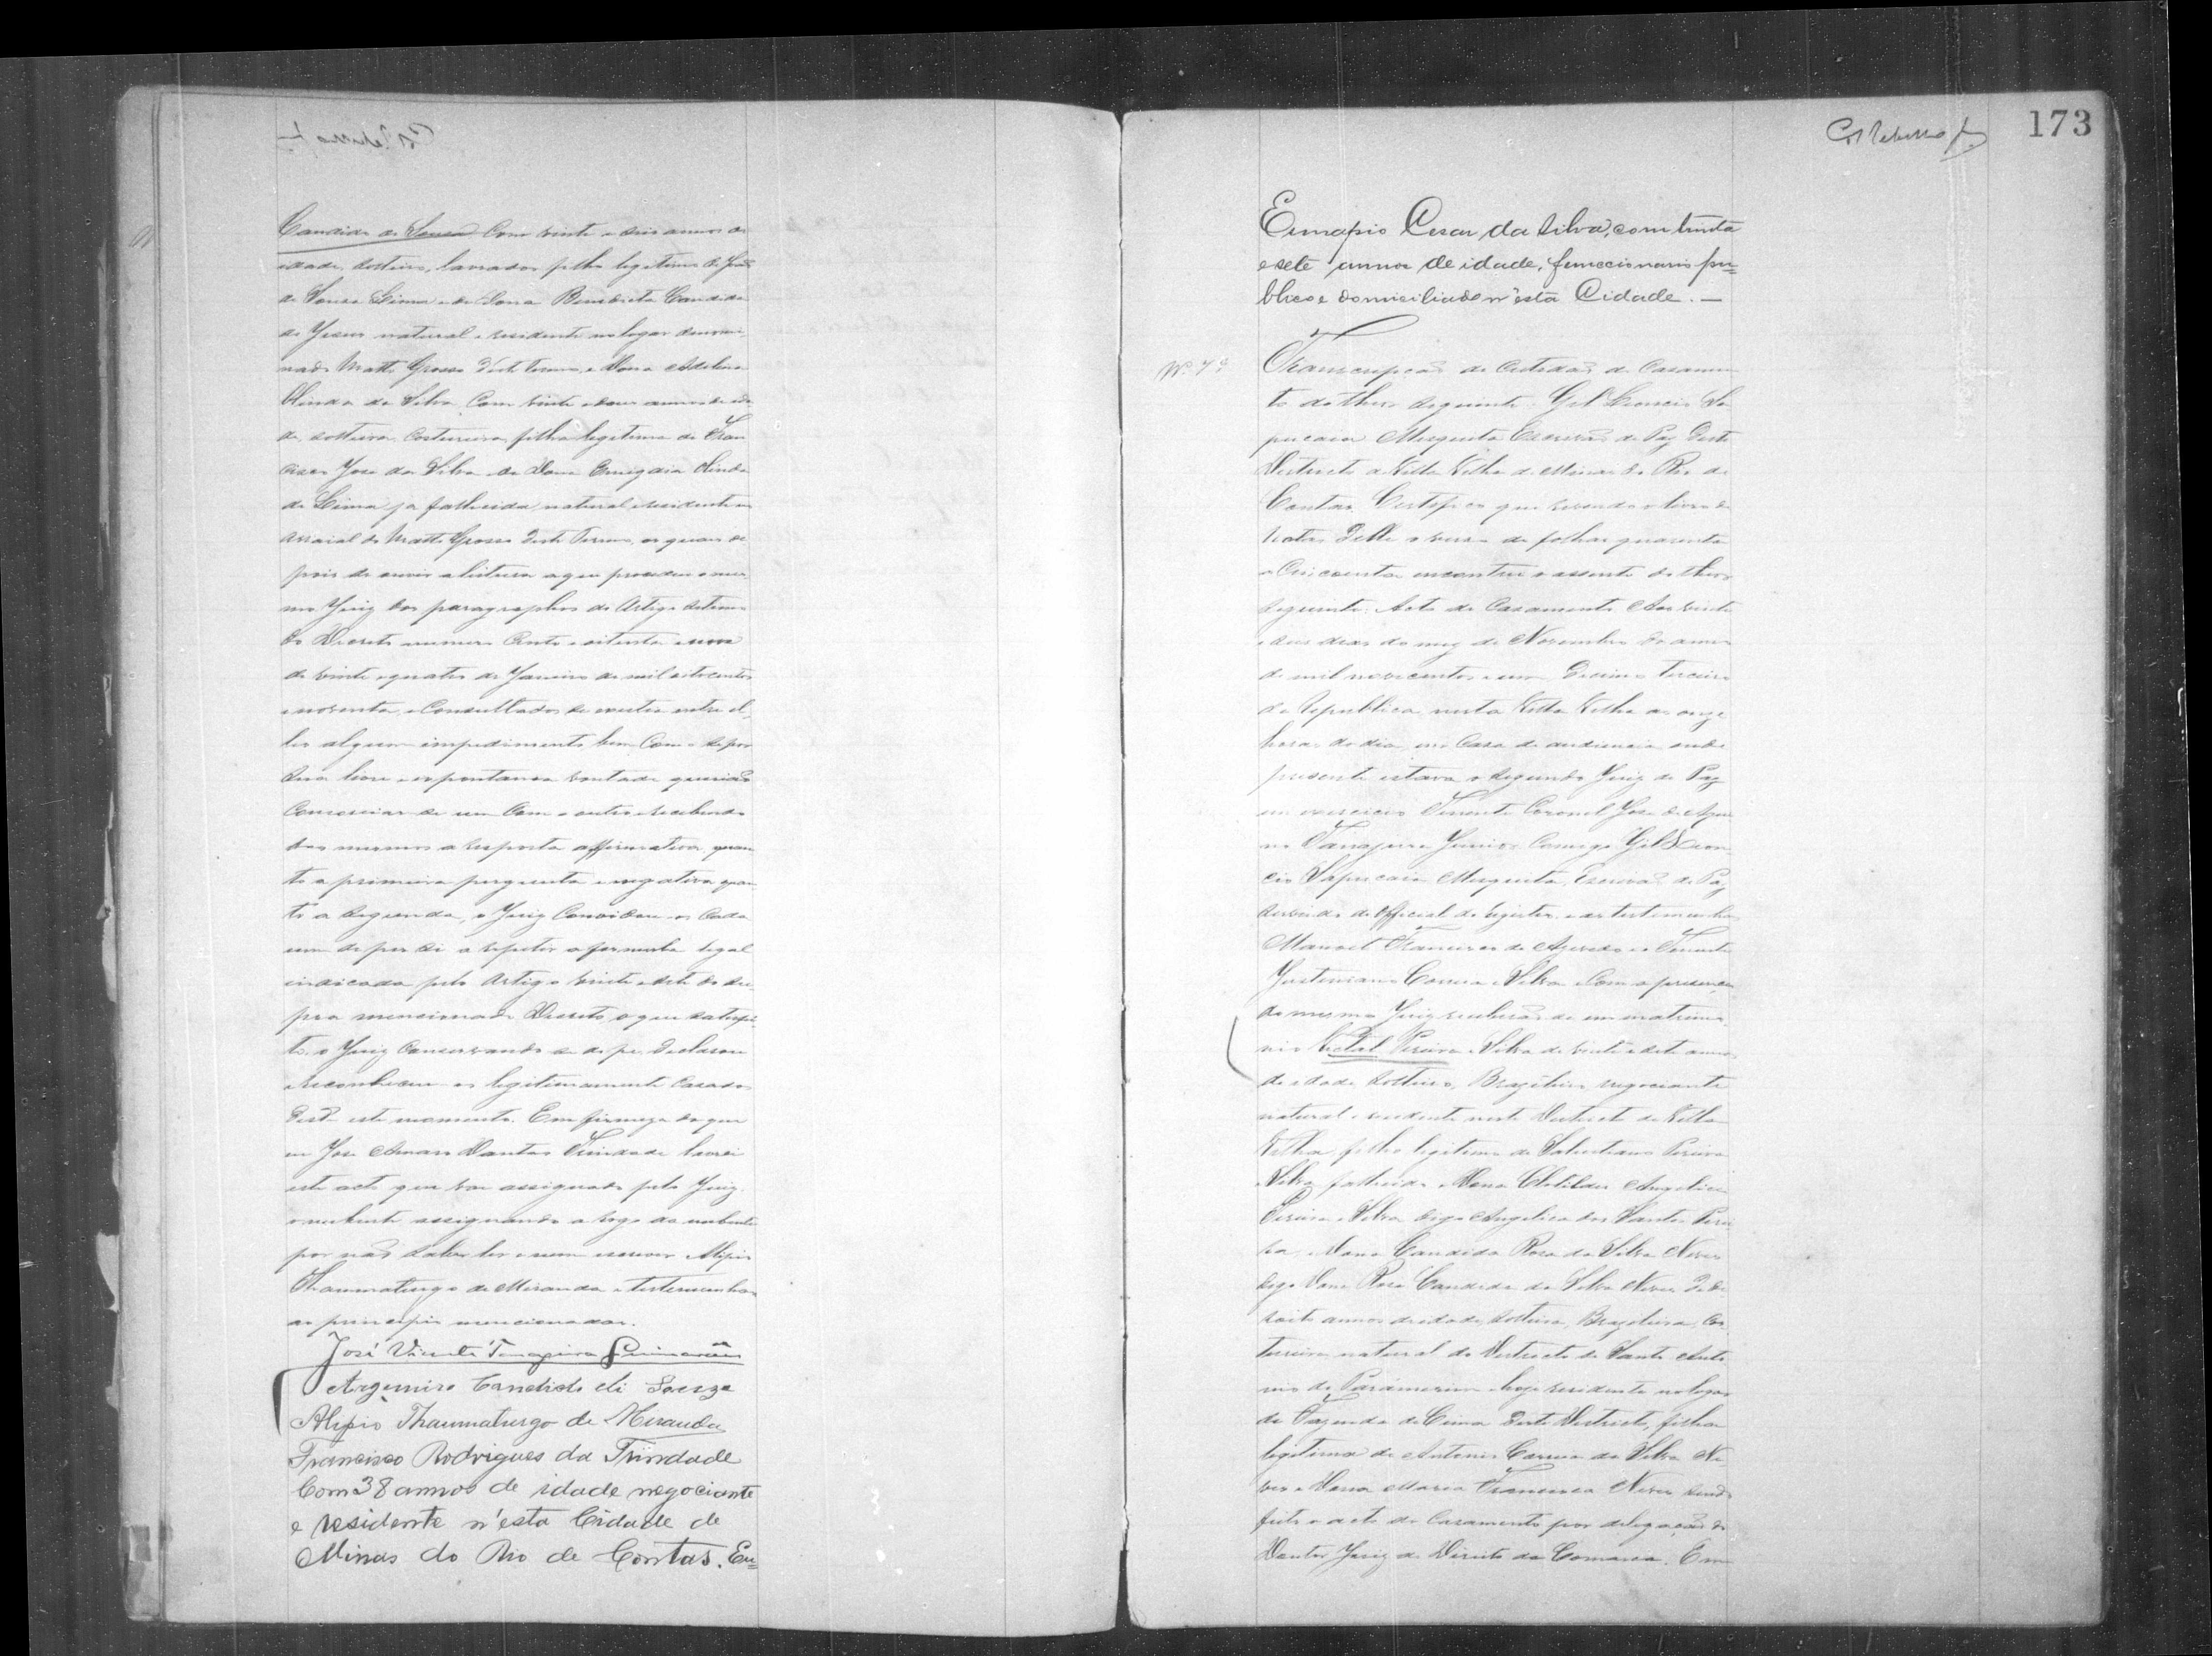 Candido de Souza com vinte e seis annos de
idade, solteiro, lavrador, filho legitimo de João
de Souza Lima e de Dona Benedicta Candida
de Jesus natural e residente no logar denomi-
nado Matto Grosso d'este Termo, e Dona Adelina
Olinda da Silva, com vinte e annos de ida
de, solteira, costureira, filha legitima de Fran
cisco José da Silva e de Dona Emygdia Olinda
de Lima ja fallecida, natural e residente no
arraial de Matto Grosso deste Termo, os quaes de
pois de ouvir a leitura a que procedeu o mes
mo Juiz dos paragraphos do Artigo setimo
do Decreto numero cento e oitenta e um
de vinte e quatro de Janeiro de mil oitocentos
e noventa, e consultados se existia entre el-
les algum impedimento bem como se por
sua livre e espontanea vontade queriam
consorciar-se um com o outro e recebendo
dos mesmos a resposta affirmativa, quan
to a primeira pergunta e negativa quan
to a segunda, o Juiz convidou-os cada
um de per si a repetir a formula legal
indicada pelo Artigo vinte e sete do su-
pra mencionado Decreto, o que satisfei-
to, o Juiz conservando-se de pé declarou
e reconheceu-os legitimamente casados
desde este momento. Em firmeza do que
eu José Amaro Dantas Trindade lavrei
este acto que vae assignado pelo Juiz
o nubente assignando a rogo da nubente
por não saber ler e nem escrever Alipio
Thaumaturgo de Miranda e testemunhas
ao principio mencionadas.
José Vicente Tanajura Guimarães
Argemiro Candido de Souza
Alipio Thaumaturgo de Miranda
Francisco Rodrigues da Trindade
Com 38 annos de idade negociante
e residente n'esta Cidade de
Minas do Rio de Contas. Eu=
173
Eunapio Cesar da Silva, com trinta
e sete annos de idade, funccionario pu=
blico e domiciliado n'esta Cidade. —
Nº 7
Transcripção da Certidão de Casamen
to do theor seguinte: Gil Leoncio Sa
pucaia Mesquita Escrivão de Paz deste
Districto de Villa Velha de Minas do Rio de
Contas. Certifico que revendo o livro de
Notas delle o verso de folhas quarenta
e cincoenta encontrei o assento do theor
seguinte: Acto de Casamento. Aos vinte
e dois dias do mez de Novembro do anno
de mil novecentos e um, Decimo terceiro
da Republica, nesta Villa Velha as onze
horas do dia, em casa de audiencia onde
presente estava o segundo Juiz de Paz
em exercicio Tenente Coronel José de Aqui
no Tanajura Junior, comigo Gil Leon
cio Sapucaia Mesquita, Escrivão de Paz
servindo de Official do registro, e as testemunhas
Manoel Francisco de Azevedo e o Tenente
Justiniano Correia e Silva e com a presença
do mesmo Juiz receberão-se em matrimo
nio Vital Pereira e Silva de vinte e sete annos
de idade, solteiro, Brazileiro, negociante
natural e residente neste Districto de Villa
Velha, filho legitimo de Salustiano Pereira
e Silva, fallecido e Dona Clotildes Angelica
Pereira e Silva, digo Angelica dos Santos Perei
ra, e Dona Candida Rosa da Silva Neves
digo Dona Rosa Candida da Silva Neves dese
soito annos de idade, solteira, Brazileira, cos
tureira natural do Districto de Santo Anto
nio do Paramirim e hoje residente no logar
da Fazenda de Cima deste Districto, filha
legitima de Antonio Correia da Silva Ne
ves e Dona Maria Francisca Neves, sendo
feito o acto de casamento por delegação do
Doutor Juiz de Direito da Comarca. Em